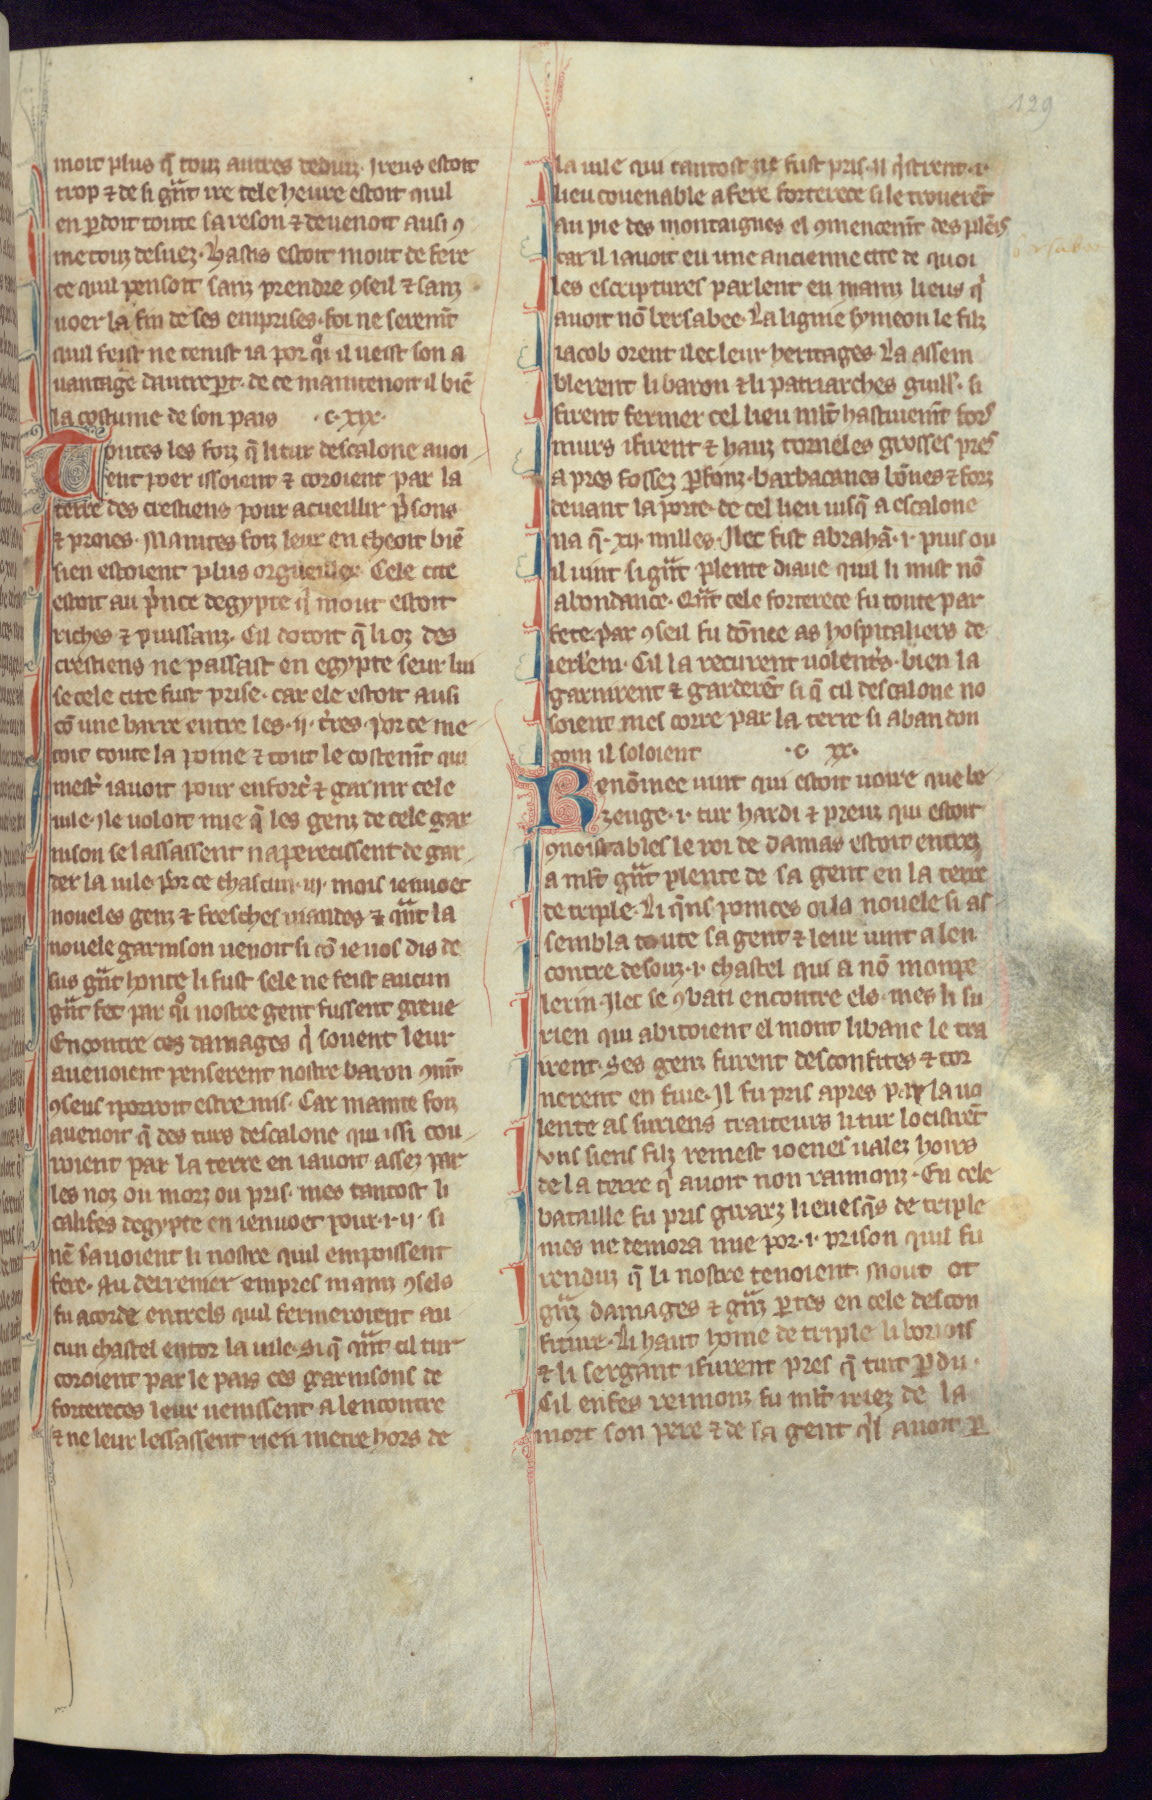 129
moit plus q̃ touz autres deduiz. Ireus estoit
trop ⁊ de si g̃nt ire tele heure estoit quil
en ꝑdoit toute sa reson ⁊ deuenoit ausi ꝯ
me touz desuez. Hastis estoit mout de fere
ce quil pensoit sanz prendre ꝯseil ⁊ sanz
uoer la fin de ses emprises. foi ne seremt̃
quil feist ne tenist ia por q̃i il ueist son a
uantage dautre ꝑt. de ce maintenoit il biẽ
la costume de son pais .c.xix.
Toutes les foiz q̃ li tur descalone auoi
ent poer issoient ⁊ coroient par la
terre des crestiens pour acueillir p̃sons
⁊ proies. Maintes foiz leur en cheoit biẽ
sien estoient plus orgueillex. Cele cite
estoit au p̃nce degypte q̃ mout estoit
riches ⁊ puissanz. Cil dotoit q̃ li oz des
crestiens ne passast en egypte seur lui
se cele cite fust prise. car ele estoit ausi
cõ une barre entre les .ii. t̃res. por ce me
toit toute la poine ⁊ tout le costemt̃ qui
mest̃ iauoit pour enforc̃ ⁊ garnir cele
uile. Il ne uoloit mie q̃ les genz de cele gar
nison se lassassent na perecissent de gar
der la uile. por ce chascun .iii. mois ienuoet
noueles genz ⁊ fresches uiandes ⁊ q̃nt la
nouele garnison uenoit si cõ ie uos dis de
sus g̃nt honte li fust sele ne feist aucun
g̃nt fet par q̃i nostre gent fussent greue
Encontre ces damages q̃ souent leur
auenoient penserent nostre baron ꝯmt̃
ꝯseus iporroit estre mis. Car mainte foiz
auenoit q̃ des turs descalone qui issi cou
roient par la terre en iauoit assez par
les noz ou morz ou pris. mes tantost li
califes degypte en ienuoet pour .i. ii. si
nẽ sauoient li nostre quil empoissent
fere. Au derrenier empres mainz ꝯsels
fu acorde entrels quil fermeroient au
cun chastel entor la uile. Si q̃ q̃nt cil tur
coroient par le pais ces garnisons de
fortereces leur uenissent a lencontre
⁊ ne leur lessassent rien metre hors de
la uile qui tantost ne fust pris. Il q̃strent .i.
lieu couenable a fere forterece si le trouerẽt
au pie des montaignes el ꝯmencemt̃ des plẽis
car il iauoit eu une ancienne cite de quoi
les escriptures parlent en mainz lieus q̃
auoit nõ bersabee. La lignie symeon le filz
iacob orent ilec leur heritages. La assem
blerent li baron ⁊ li patriarches guill̃. si
firent fermer cel lieu ml̃t hastiuemt̃ fors
murs ifirent ⁊ hauz torneles grosses pres
a pres fossez ꝑfonz. barbacanes bõnes ⁊ forz
deuant la porte. de cel lieu iusq̃ a escalone
na q̃ .xii. milles. Ilec fist abrahã .i. puis ou
il uint si g̃nt plente diaue quil li mist nõ
abondance. Q̃nt cele forterece fu toute par
fete. par ꝯseil fu dõnee as hospitaliers de
ierl̃em. Cil la recurent uolent̃s. bien la
garnirent ⁊ garderẽt si q̃ cil descalone no
soient mes corre par la terre si abandon
com il soloient .c. xx.
Renõmee uint qui estoit uoire que be
zeuge .i. tur hardi ⁊ preuz qui estoit
ꝯnoistables le roi de damas estoit entrez
a ml̃t g̃nt plente de sa gent en la terre
de triple. Li q̃ns pontces oi la nouele si as
sembla toute sa gent ⁊ leur uint a len
contre desouz .i. chastel qui a nõ monpe
lerin. Ilec se ꝯbati encontre els. mes li su
rien qui abitoient el mont libane le tra
irent. Ses genz furent desconfites ⁊ tor
nerent en fuie. Il fu pris apres par la uo
lente as suriens traiteurs li tur locistrẽt
uns siens filz remest ioenes ualez hoirs
de la terre q̃ auoit non raimonz. En cele
bataille fu pris girarz li euesq̃s de triple
mes ne demora mie por .i. prison quil fu
renduz q̃ li nostre tenoient. Mout ot
g̃nz damages ⁊ g̃nz ꝑtes en cele descon
fiture. Li haut home de triple li boriois
⁊ li sergant ifurent pres q̃ tuit ꝑdu.
Cil enfes reimonz fu ml̃t iriez de la
mort son pere ⁊ de sa gent q̃l auoit ꝑ